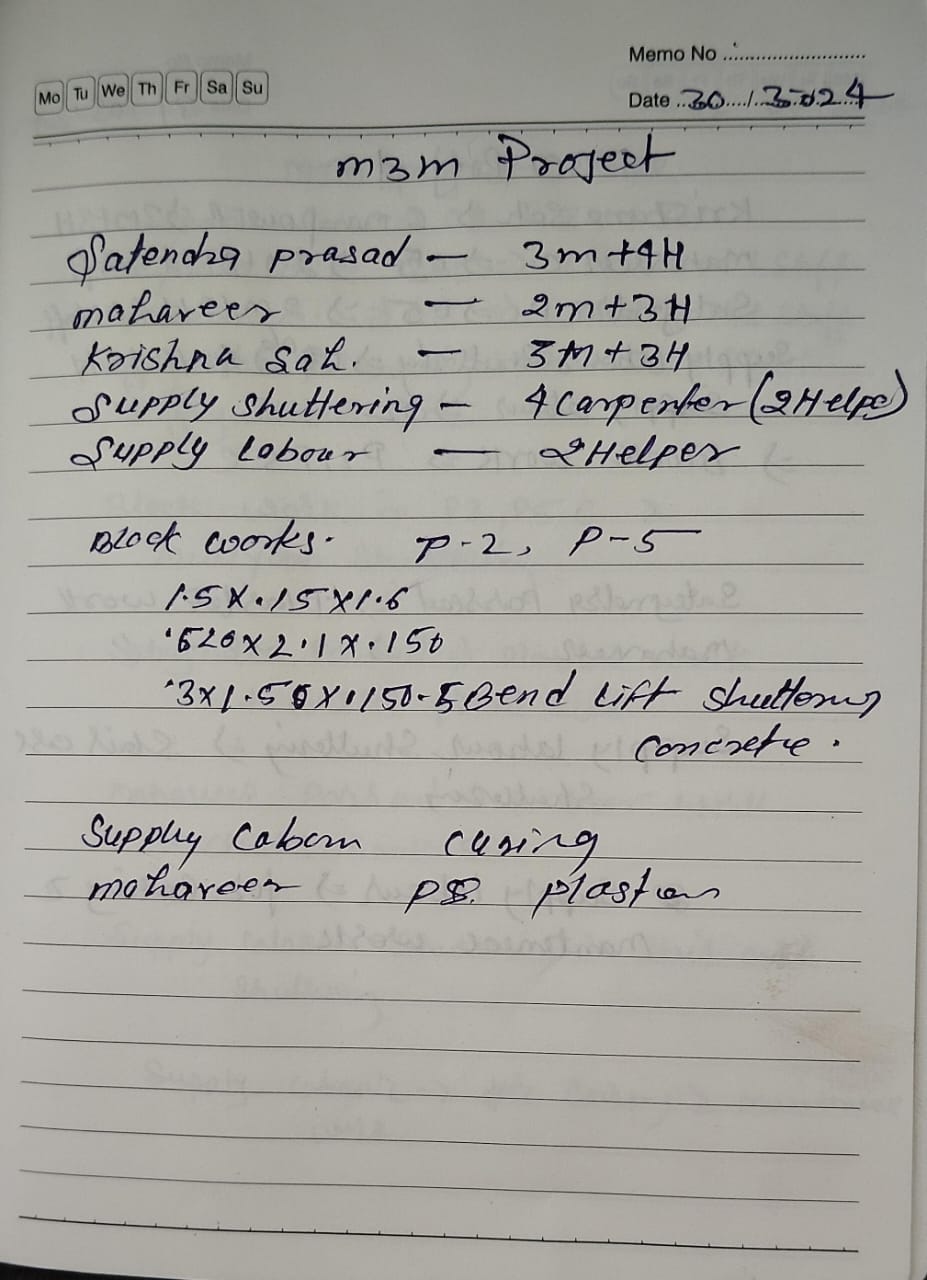 Memo No
Mo Tu We Th Fr Sa Su
Date 30/3.2024
m3m Project
Satendra prasad - 3m+4H
mahaveer - 2m+3H
Krishna Sah. - 3M+3H
Supply Shuttering - 4 Carpenter (2Helpe)
Supply Labour - 2Helper
Block works. P-2, P-5
1.5X.15X1.6
.620X2.1X.150
Bend Lift Shuttering
Concrete.
Supply curing
mahaveer plaster